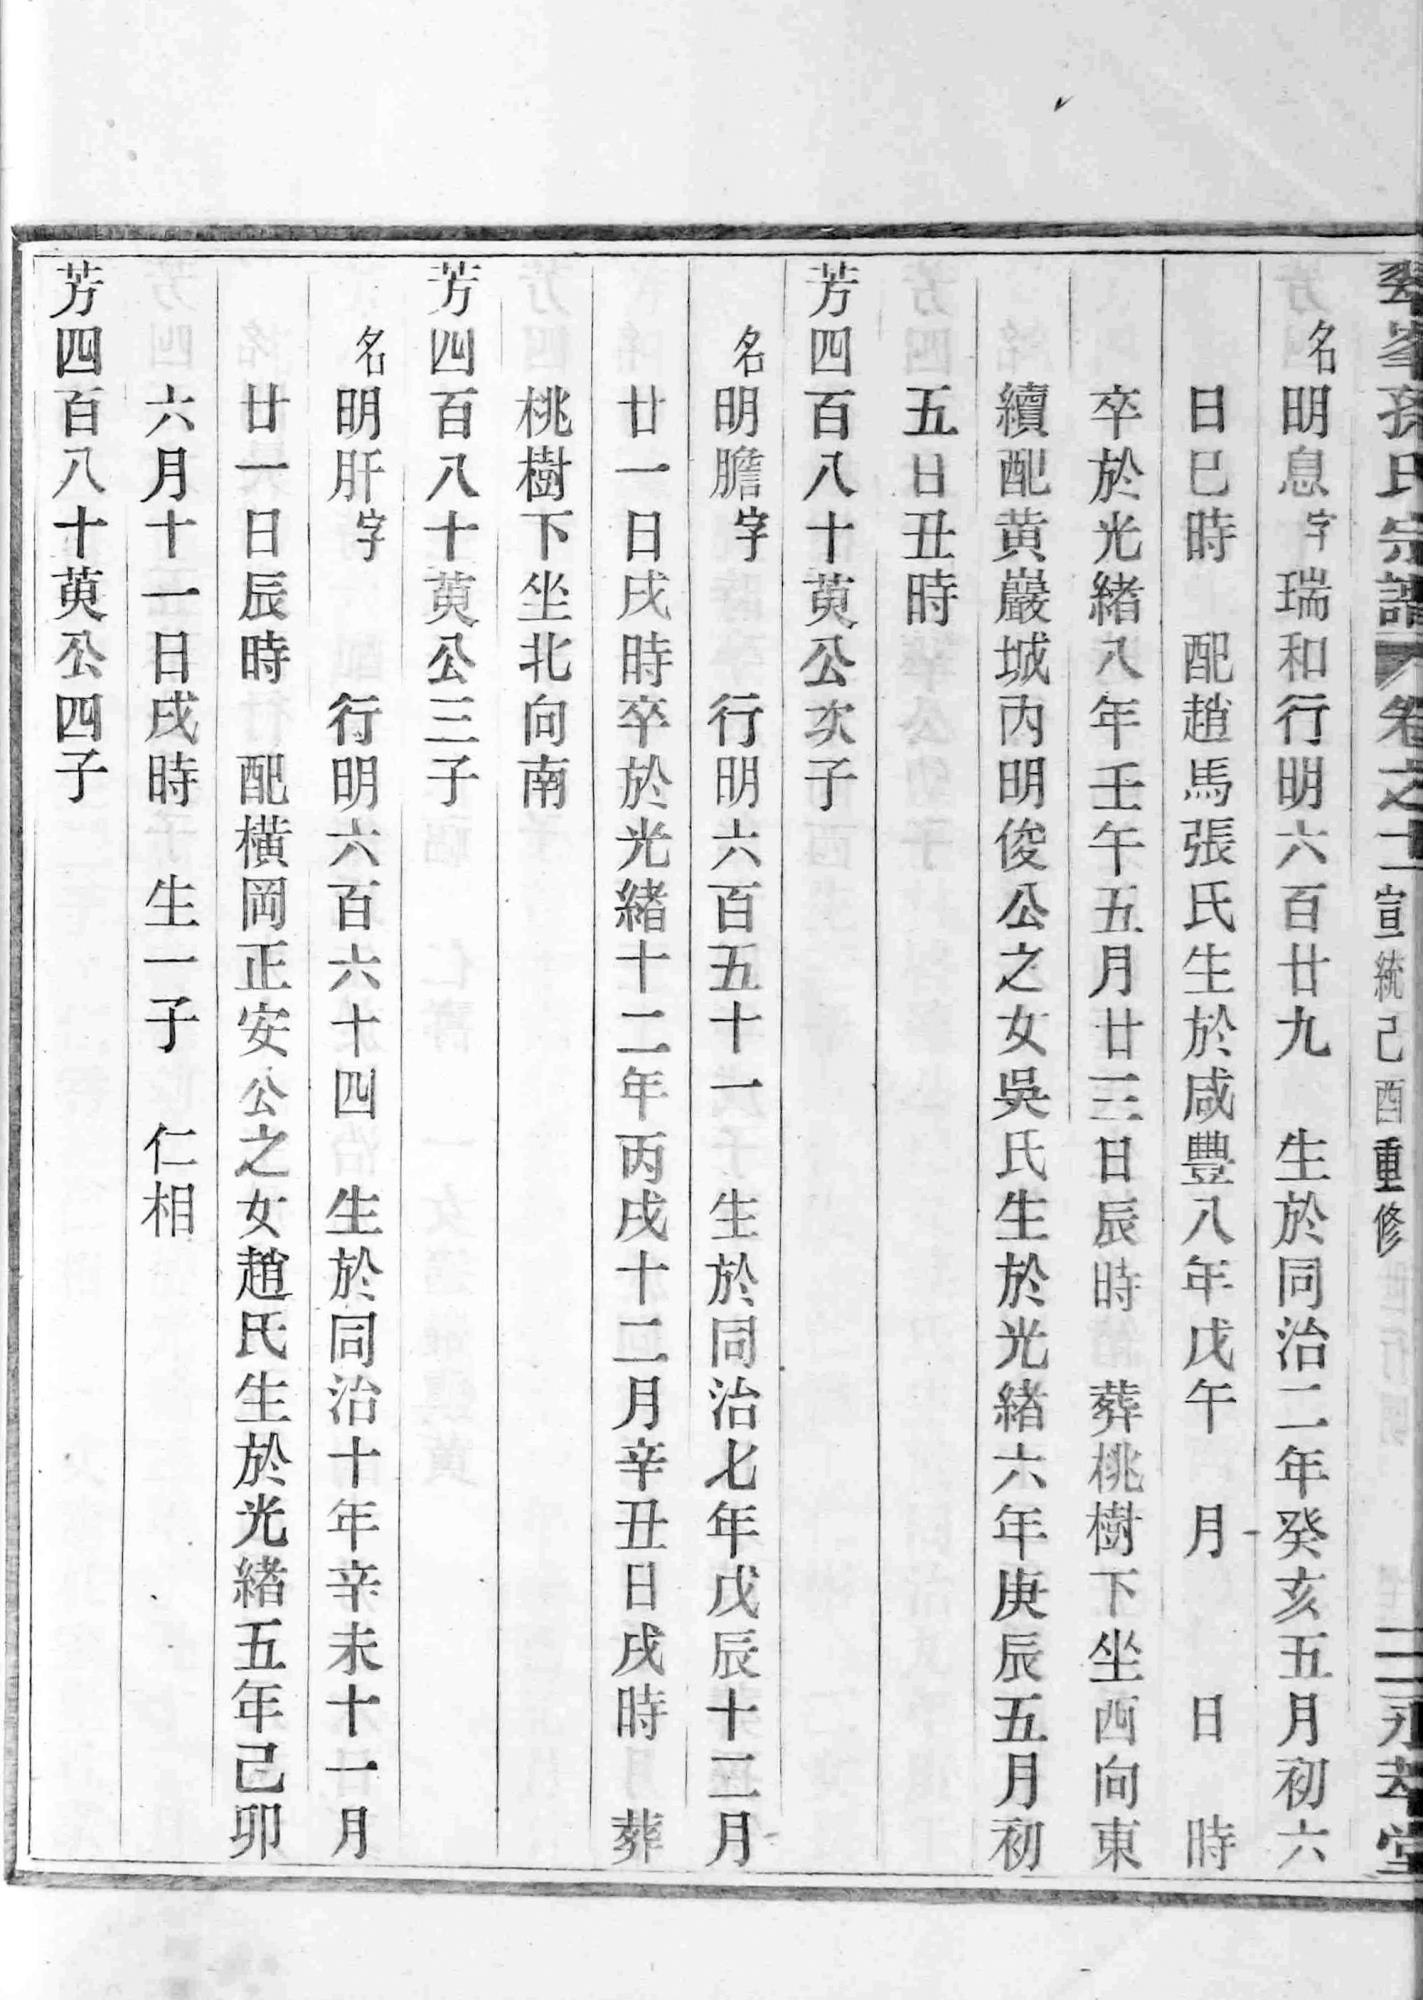 翠峯孫氏宗譜 卷之十二 宣統己酉重修 永孝堂
名明息字瑞和行明六百廿九 生於同治二年癸亥五月初六
日巳時 配趙馬張氏生於咸豐八年戊午 月 日 時
卒於光緒八年壬午五月廿三日辰時 葬桃樹下坐西向東
續配黃巖城內明俊公之女吳氏生於光緒六年庚辰五月初
五日丑時
芳四百八十萸公次子
名明膽字 行明六百五十一 生於同治七年戊辰十二月
廿一日戌時卒於光緒十二年丙戌十二月辛丑日戌時 葬
桃樹下坐北向南
芳四百八十萸公三子
名明肝字 行明六百六十四治 生於同治十年辛未十一月
廿一日辰時 配橫岡正安公之女趙氏生於光緒五年己卯
六月十一日戌時 生一子 仁相
芳四百八十萸公四子